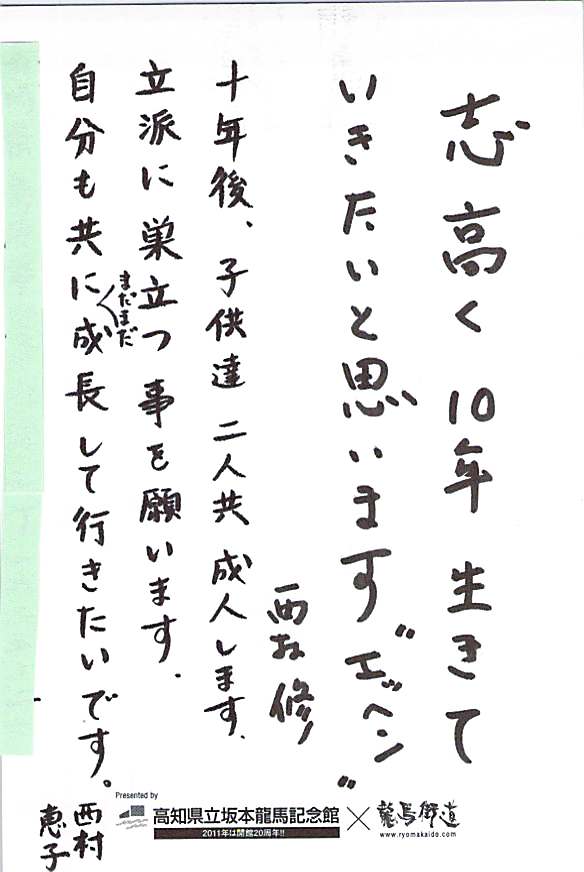 志高く 10年 生きて
いきたいと思います"エッヘン"
西村 修
十年後、子供達 二人共 成人します。
立派に 巣立つ 事を願います。
自分も共に成長して行きたいです。
まだまだ
西村
恵子
Presented by
高知県立坂本龍馬記念館 × 龍馬街道
2011年は開館20周年!!
www.ryomakaido.com